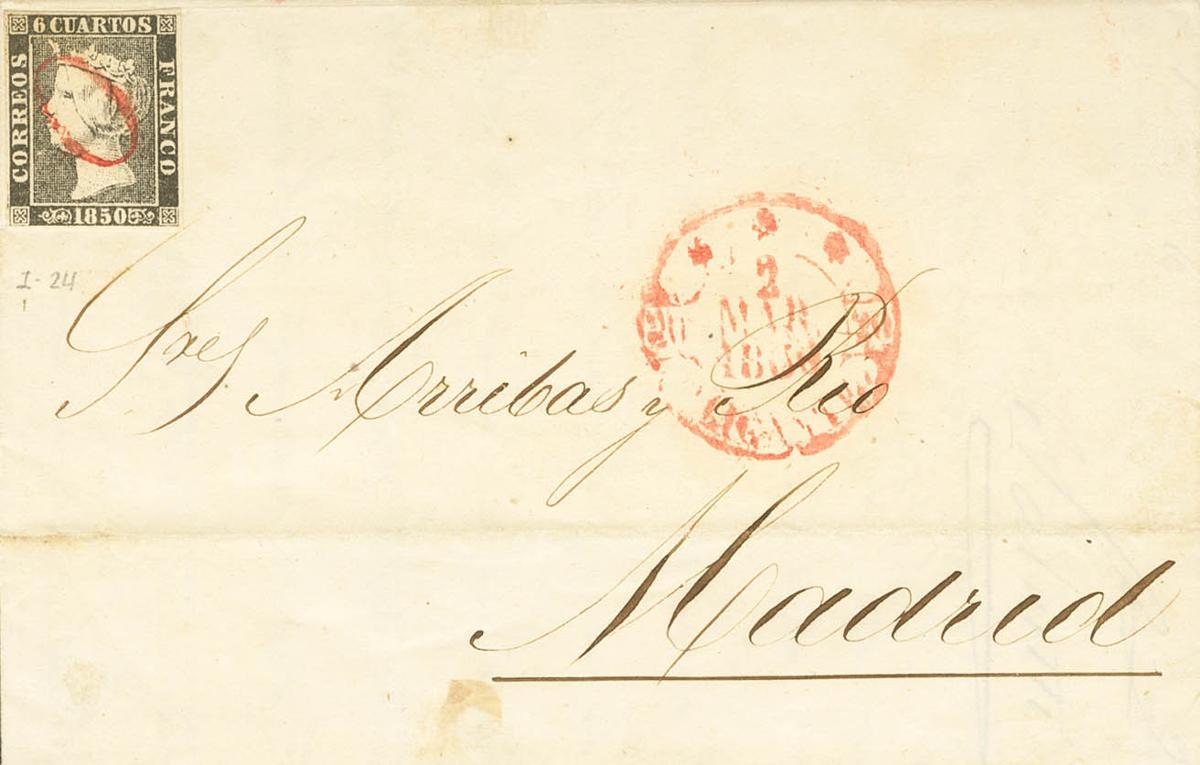 6 CUARTOS
CORREOS
FRANCO
1850
I-24
2
MAR
Sres Arribas y Rio
Madrid